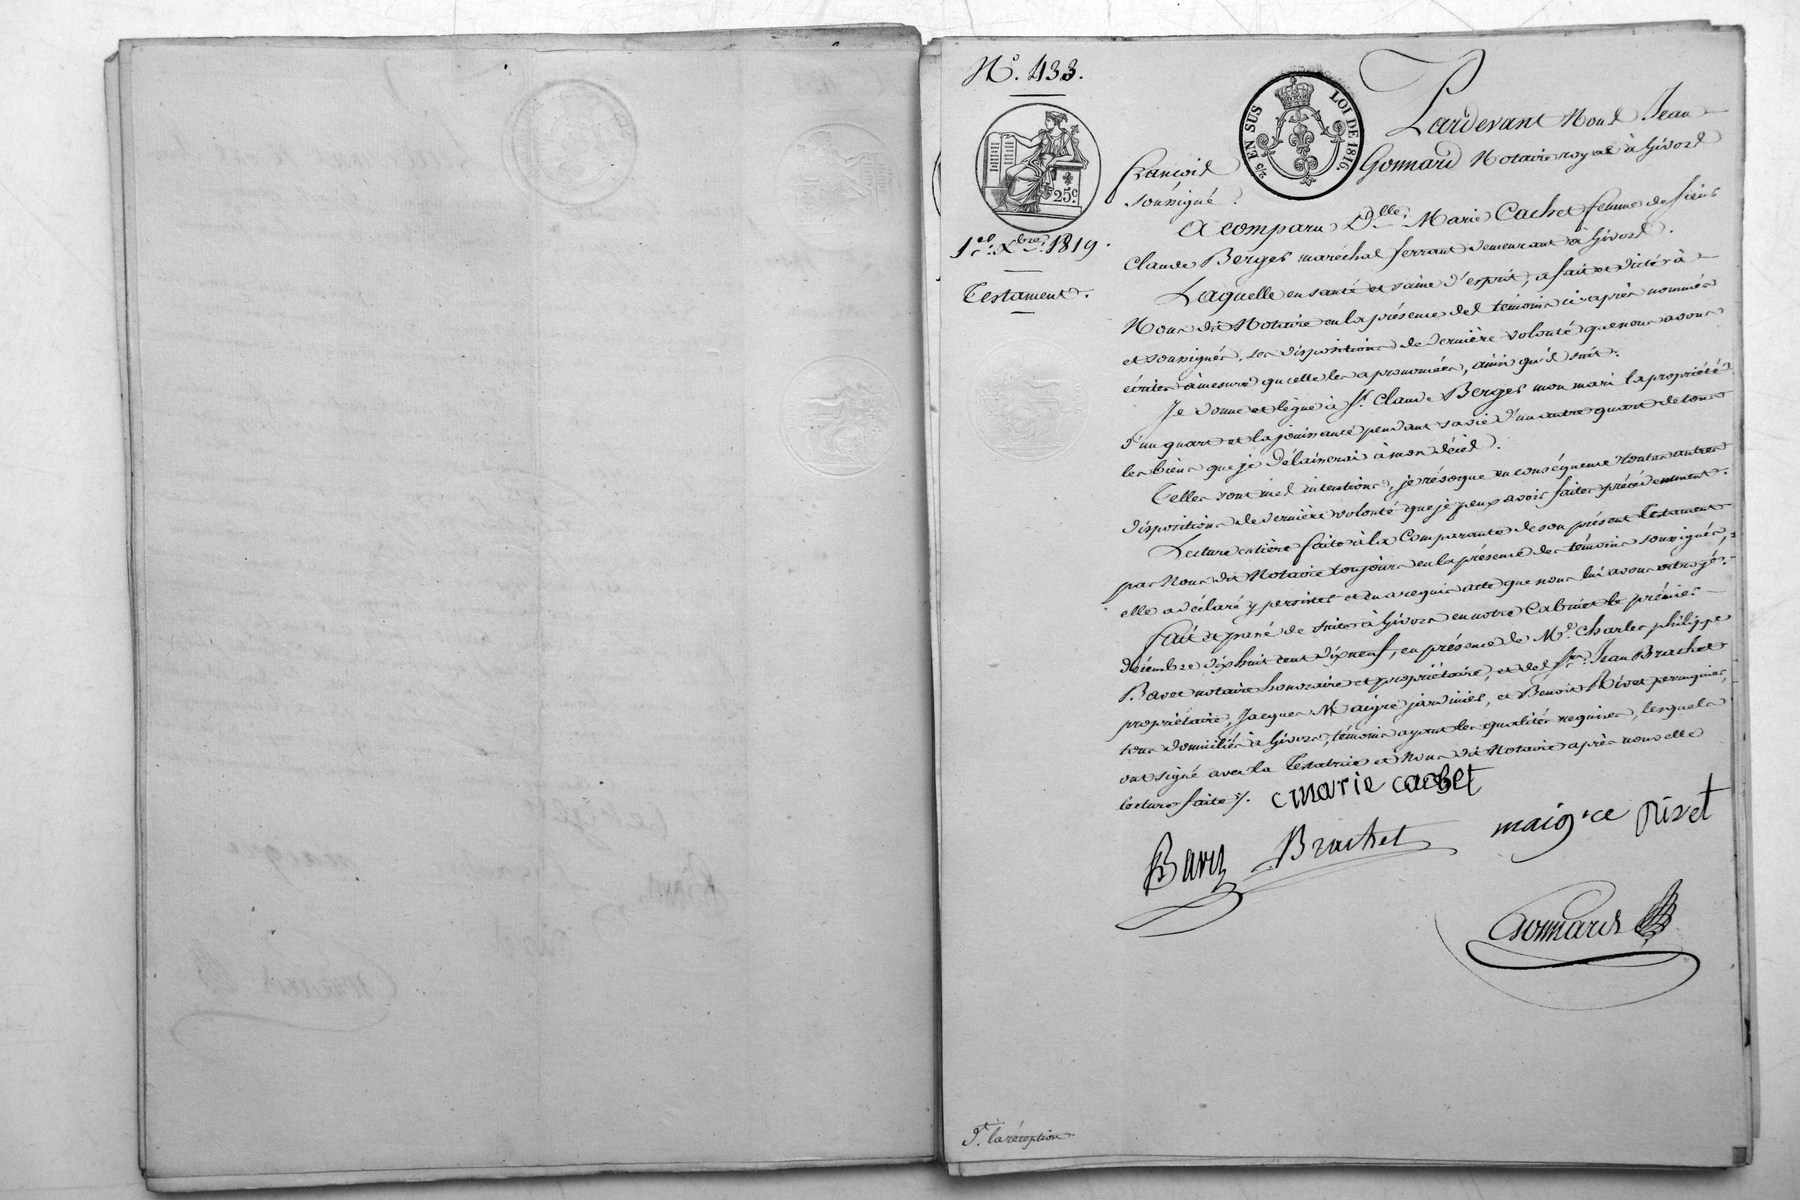 N.° 433.
25 EN SUS LOI DE 1816.
25.c
1.er Xbre. 1819.
Testament.
Pardevant Nous Jean
François Gonnard Notaire royal à Givors
soussigné.
A comparu D.lle Marie Cachet femme de sieur
Claude Berges maréchal ferrant demeurant à Givors.
Laquelle en santé et saine d'esprit, a fait et dicté à
Nous dit Notaire en la présence des témoins ci-après nommés
et soussignés, ses dispositions de dernière volonté que nous avons
écrites à mesure qu'elle les a prononcées, ainsi qu'il suit.
Je donne et lègue à S.r Claude Berges mon mari la propriété
d'un quart et la jouissance pendant sa vie d'un autre quart de tous
les biens que je délaisserai à mon décès.
Telles sont mes intentions, je révoque en conséquence toutes autres
dispositions de dernière volonté que je peux avoir faites précédemment.
Lecture entière faite à la Comparante de son présent Testament
par Nous dit Notaire toujours en la présence des témoins soussignés,
elle a déclaré y persister et en a requis acte que nous lui avons octroyé.
Fait et passé de suite à Givors en notre Cabinet le premier
décembre dix huit cent dix neuf, en présence de M.e Charles philippe
Bavet notaire honoraire et propriétaire, et des S.rs Jean Brachet
propriétaire, Jacques Maigre jardinier, et Benoit Rivet perruquier,
tous domiciliés à Givors, témoins ayant les qualités requises, lesquels
ont signé avec la Testatrice et Nous dit Notaire après nouvelle
lecture faite ./.
marie cachet
Brachet maigre Rivet
Gonnard
la réception